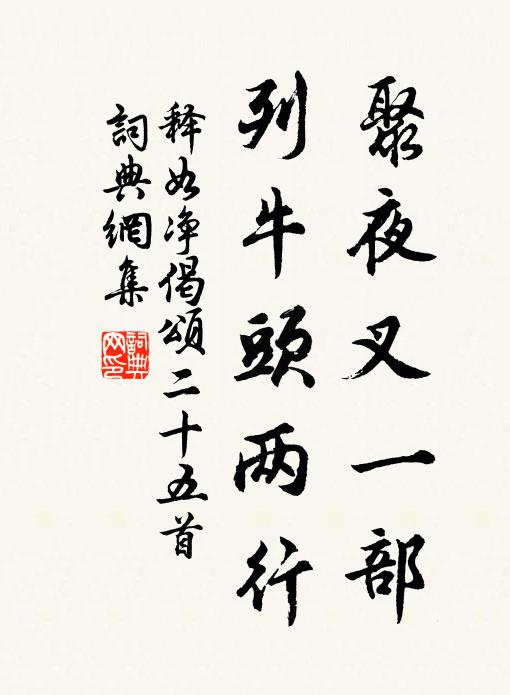 聚夜叉一部
列牛頭两行
释如净偈頌二十五首
詞典網集
詞典網印